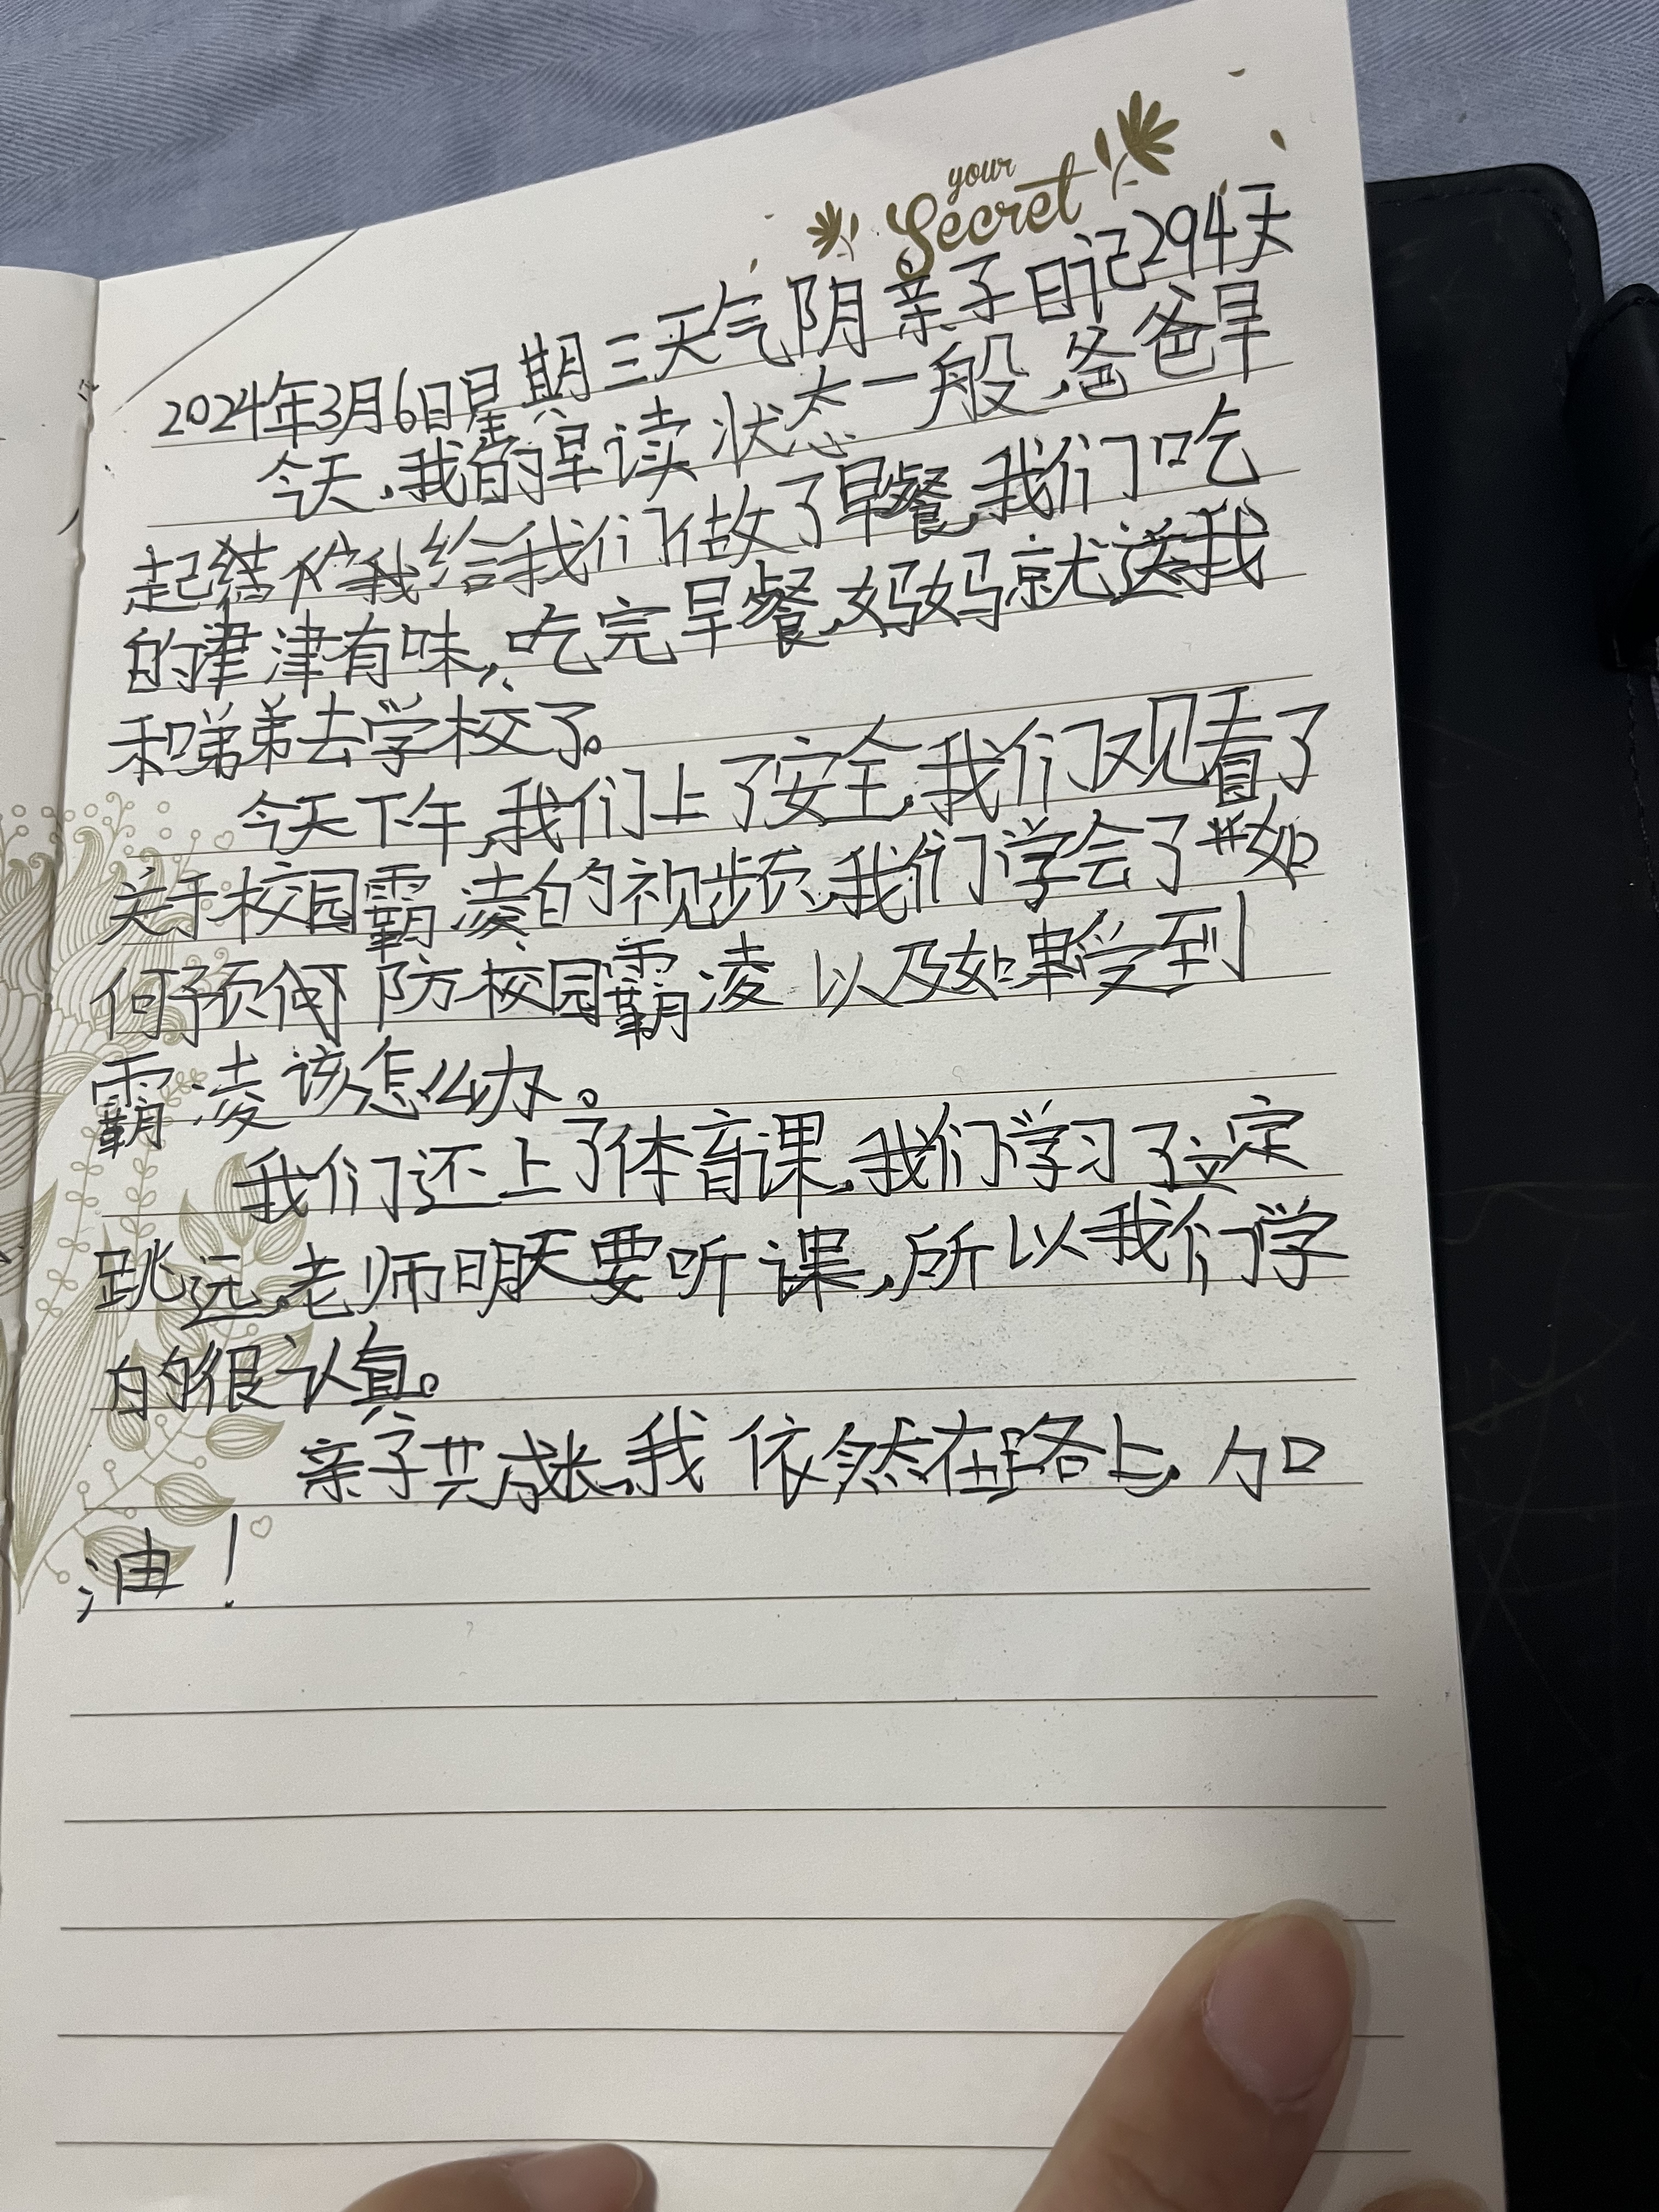 your
Secret
2024年3月6日星期三天气阴亲子日记294天
今天,我的早读状态一般,爸爸早
起给我们做了早餐,我们吃
的津津有味,吃完早餐,妈妈就送我
和弟弟去学校了。
今天下午,我们上了安全,我们又观看了
关于校园霸凌的视频,我们学会了如
何预防校园霸凌以及如果受到
霸凌该怎么办。
我们还上了体育课,我们学习了立定
跳远,老师明天要听课,所以我们学
的很认真。
亲子共成长,我依然在路上,加
油!